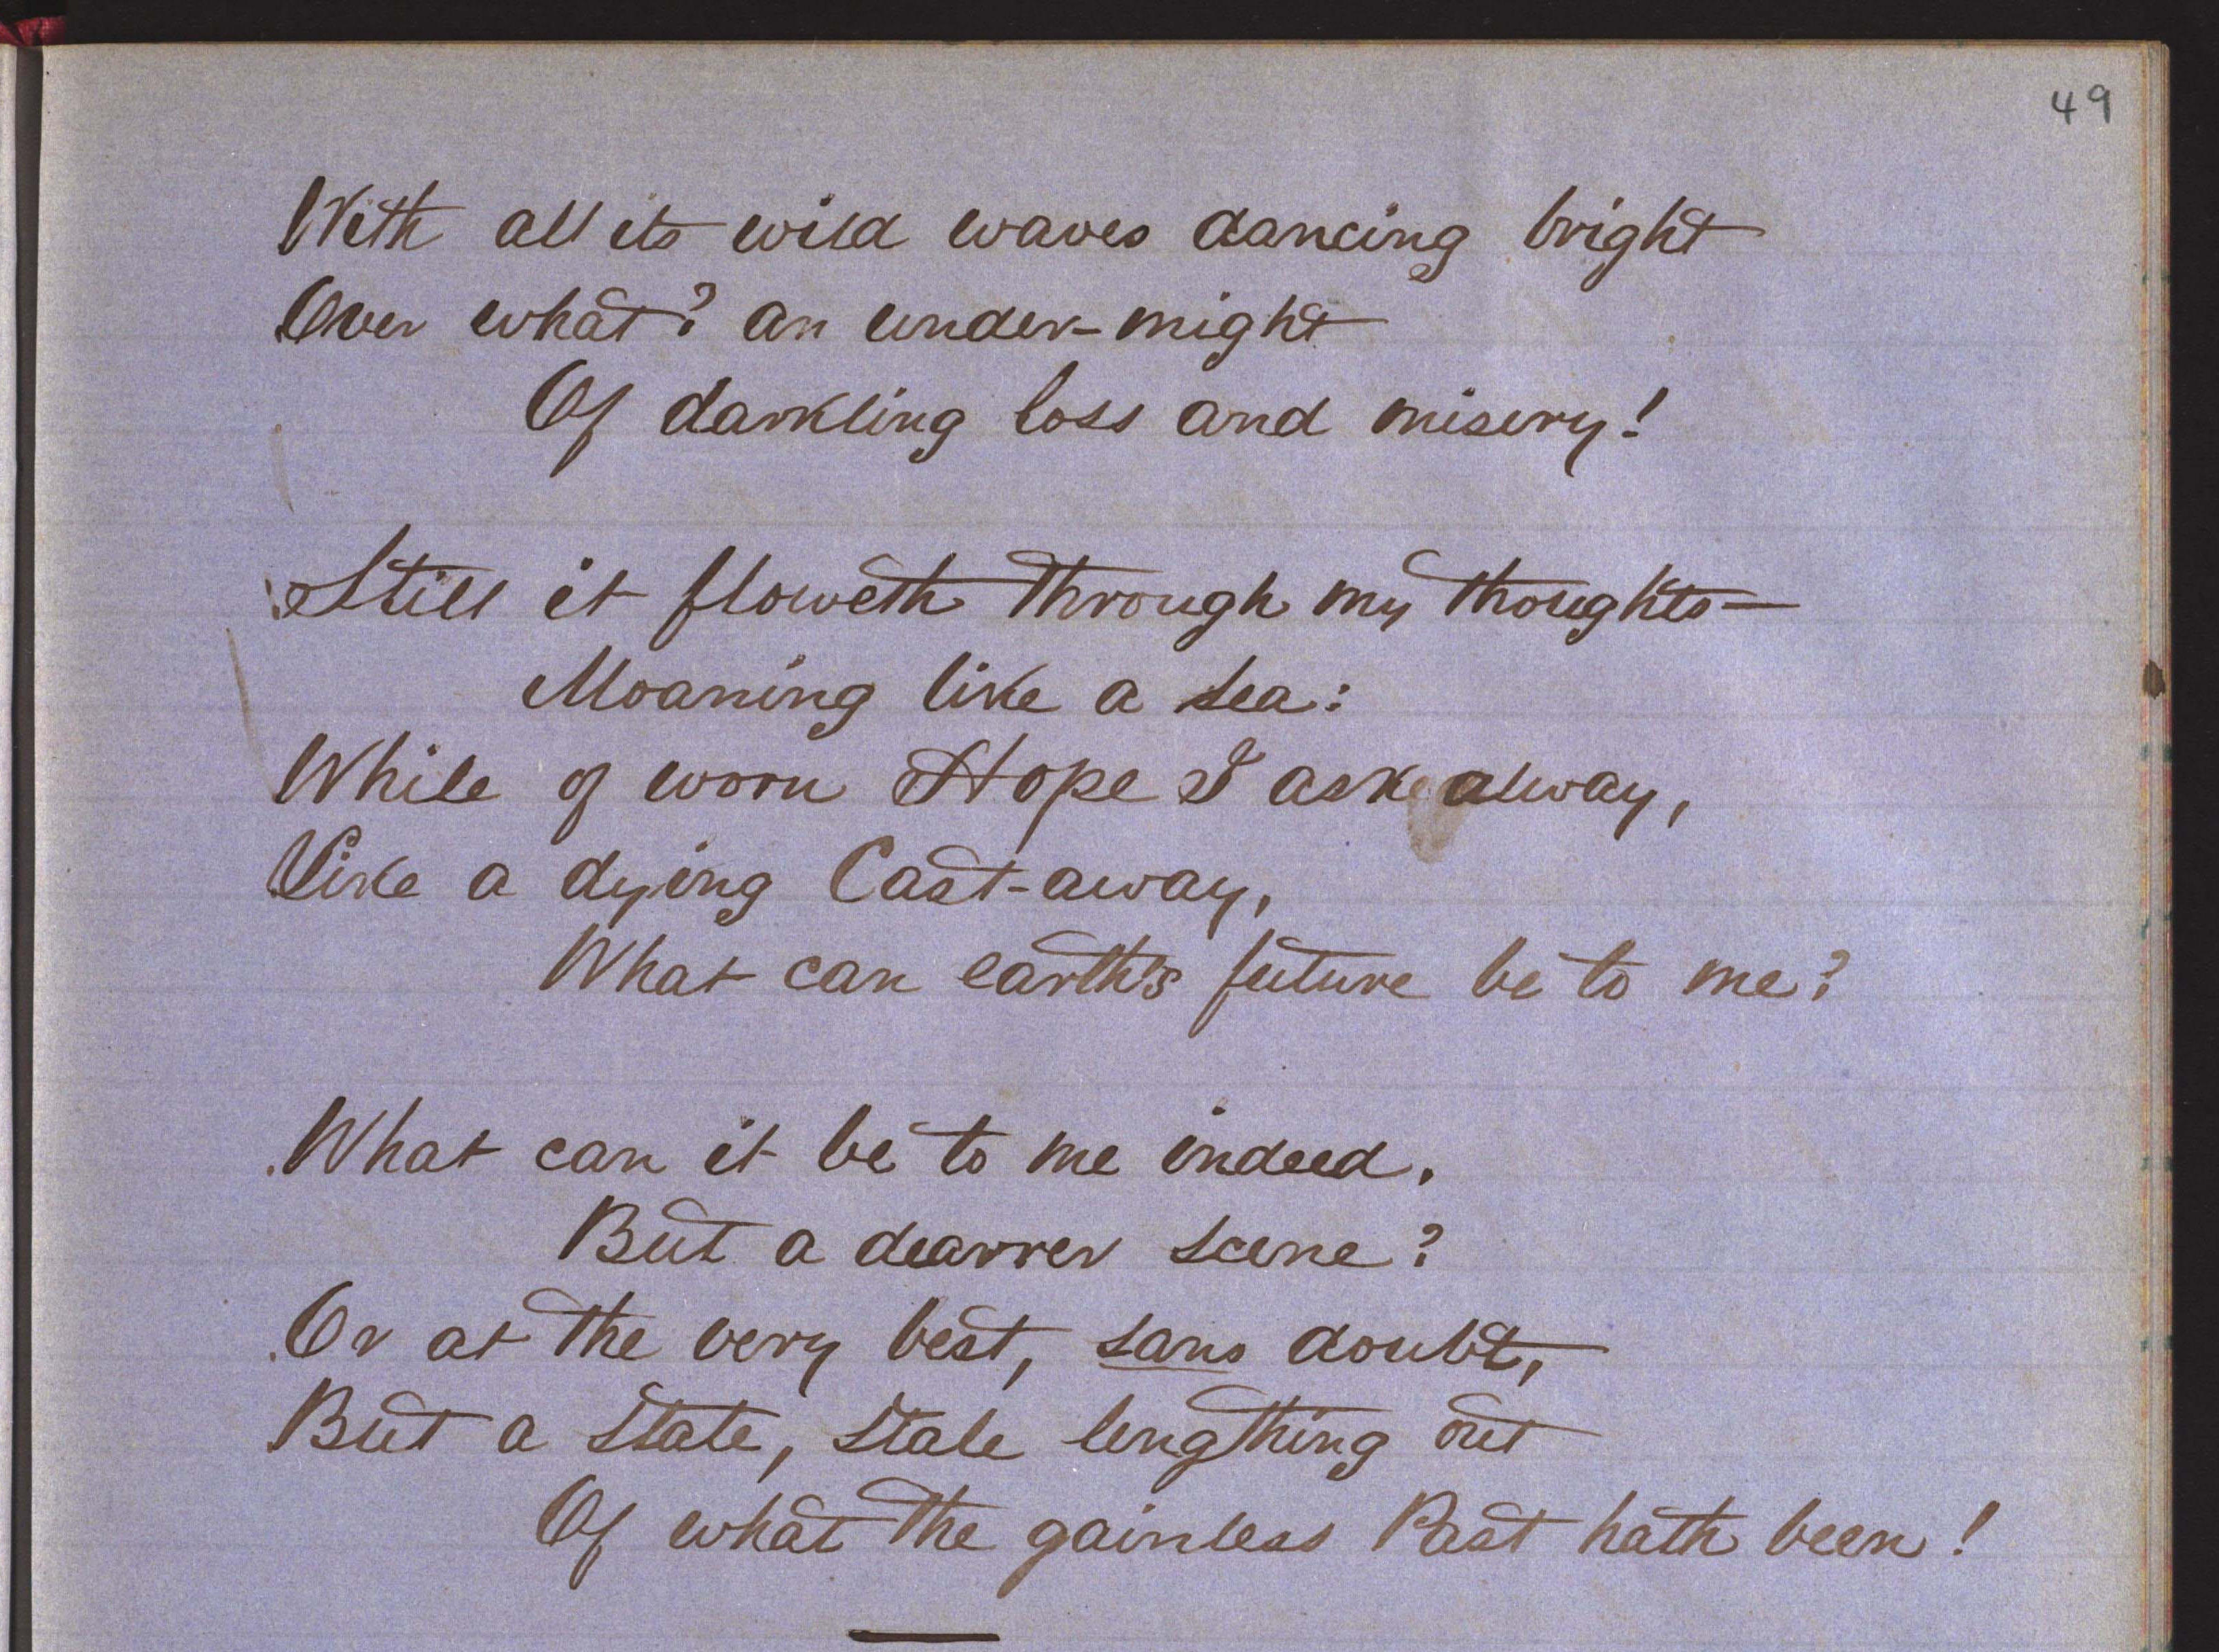 49
With all its wild waves dancing bright
Over what? an under-might
Of darkling loss and misery!
Still it floweth through my thoughts—
Moaning like a sea:
While of worn Hope I ask alway,
Like a dying Cast-away,
What can earth's future be to me?
What can it be to me indeed,
But a dearrer scene?
Or at the very best, sans doubt,
But a state, stale lengthing out
Of what the gainless Past hath been!